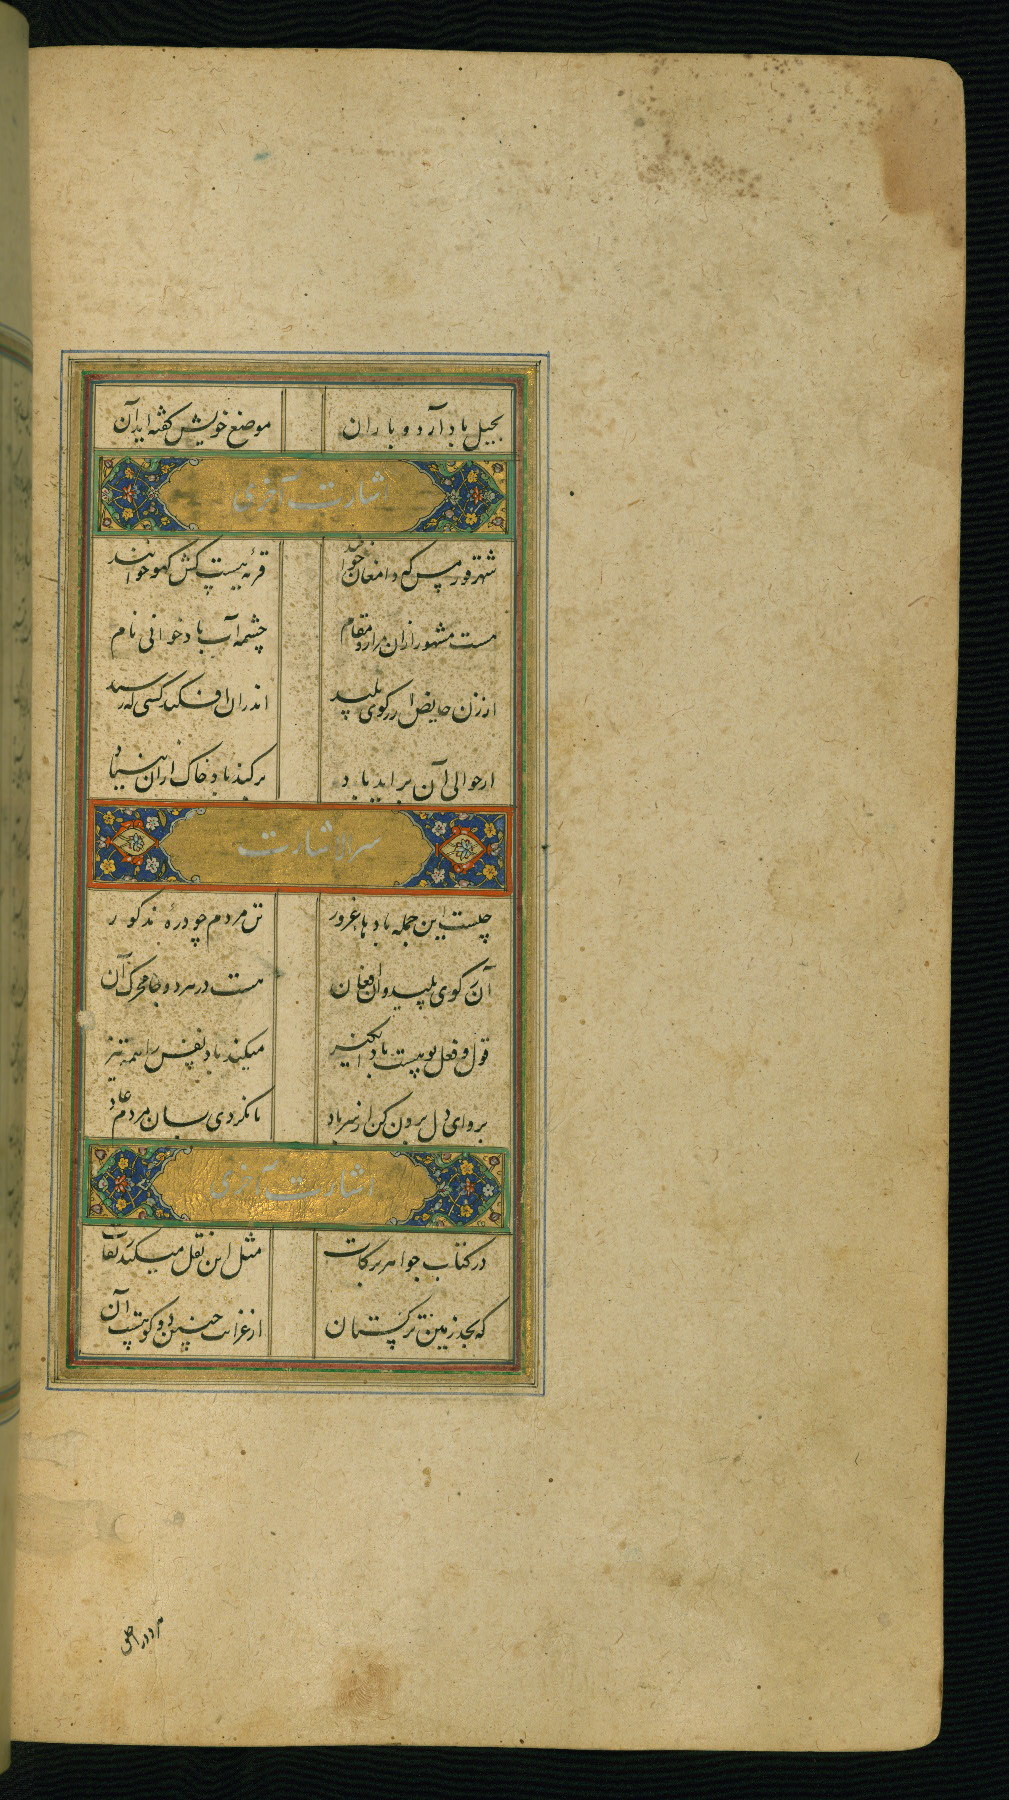 بحیل باد آرد و باران موضع خویش کفته اند آن
اشارت آخری
شهر قومس که دامغان خوانند قریه نیست کش کمو خوانند
هست مشهور ازان مرارو مقام چشمه آب باد خوانی نام
از زن حایض ار رکوی پلید اندران افکند کسی که رسید
از حوالی آن براید باد بر کند باد خاک ازان بنیاد
سر الاشارت
چیست این جمله باد هاء غرور تن مردم چو دره مذکور
آن رکوی پلید وان افغان هست در هر دو جا محرک آن
قول و فعل تو هست باد انگیز میکند باد نفس را همه تیز
برو ای دل برون کن از سر باد تا نکردی بسان مردم عاد
اشارت آخری
در کتاب جواهر برکات مثل این نقل میکند ثقات
که بحد زمین ترکستان از غرائب چنین دو کوهست آن